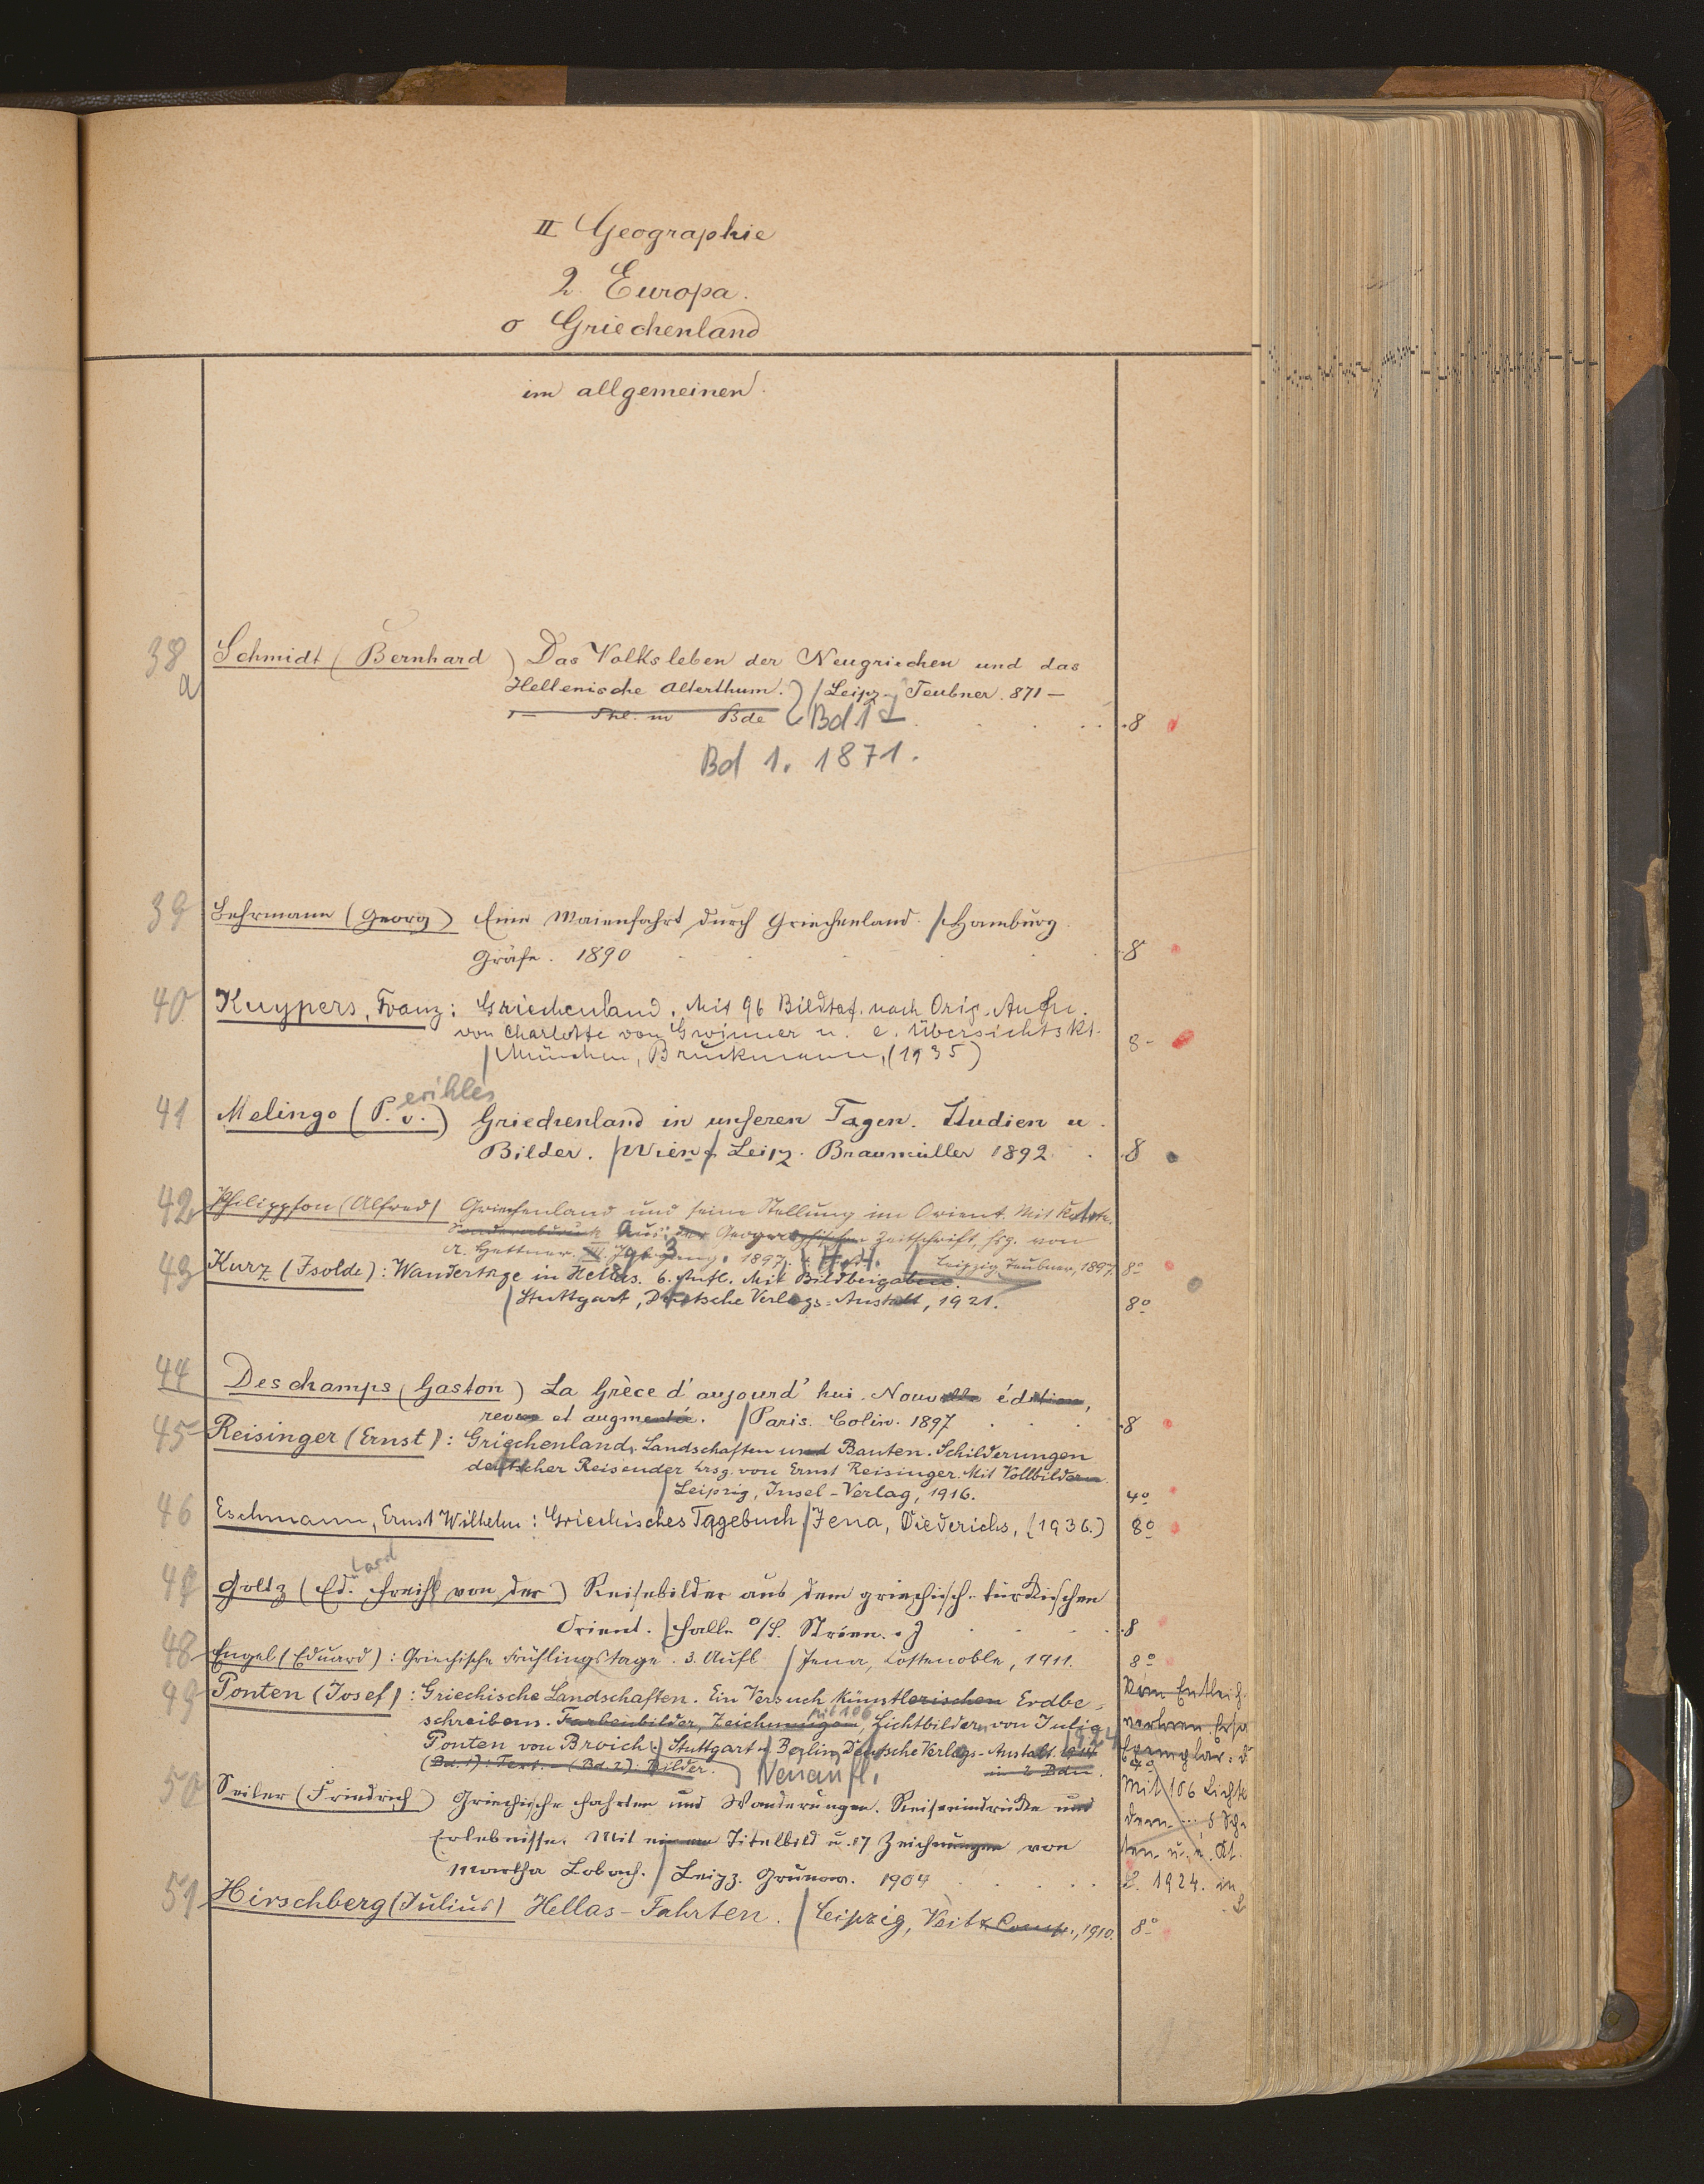 II Geographie
2. Europa.
o Griechenland
im allgemeinen.
38a Schmidt (Bernhard) Das Volksleben der Neugriechen und das
Hellenische Alterthum. / Leipz. Teubner. 871 –
1 – Thl. in Bde Bd 1 . 8
Bd 1. 1871.
39 Behrmann (Georg) Eine Maienfahrt durch Griechenland. / Hamburg
Gräfe. 1890 . 8
40 Kuypers, Franz: Griechenland. Mit 96 Bildtaf. nach Orig. Aufn.
von Charlotte von Gwinner u. e. Übersichtskt.
/ München, Bruckmann, (1935) 8-
erikles
41 Melingo (P. v.) Griechenland in unseren Tagen. Studien u.
Bilder. / Wien / Leipz. Braumüller 1892 . 8
42 Philippson (Alfred) Griechenland und seine Stellung im Orient. Mit Karte.
Sonderabdruck Aus: der Geographischen Zeitschrift, hrsg. von
A. Hettner. III. Jg. 3 1897. / Leipzig, Teubner, 1897. 8º
43 Kurz (Isolde): Wandertage in Hellas. 6. Aufl. Mit Bildbeigaben.
/ Stuttgart, Deutsche Verlags-Anstalt, 1921. 8º
44 Deschamps (Gaston) La Grèce d'aujourd'hui. Nouvelle édition,
revue et augmentée. / Paris. Colin. 1897 . 8
45 Reisinger (Ernst): Griechenland. Landschaften und Bauten. Schilderungen
deutscher Reisender hrsg. von Ernst Reisinger. Mit Vollbildern.
/ Leipzig, Insel-Verlag, 1916. 4º
46 Eschmann, Ernst Wilhelm: Griechisches Tagebuch / Jena, Diederichs, (1936.) 8º
uard
47 Goltz (Ed. Freih. von der) Reisebilder aus dem griechisch-türkischen
Orient. / Halle a/S. Strien. o J . 8
48 Engel (Eduard): Griechische Frühlingstage. 3. Aufl. / Jena, Costenoble, 1911. 8º
49 Ponten (Josef): Griechische Landschaften. Ein Versuch künstlerischen Erdbe-
schreibens. Farbenbilder, Zeichnungen, Mit 106 Lichtbildern von Julia
Ponten von Broich. / Stuttgart u. Berlin, Deutsche Verlags-Anstalt. 1914 1924
(Bd. 1): Text. – (Bd. 2): Bilder. Neuaufl. in 2 Bdn. 4º
Vom Entleih.
verloren. Ersa
Exemplar: d
Mit 106 Lichtb
dern
ten u. e. Kt.
1924. in
50 Seiler (Friedrich) Griechische Fahrten und Wanderungen. Reiseeindrücke und
Erlebnisse. Mit einem Titelbild u. 17 Zeichnungen von
Martha Lobach. / Leipz. Grunow. 1904
51 Hirschberg (Julius) Hellas-Fahrten. / Leipzig, Veit & Comp., 1910. 8º